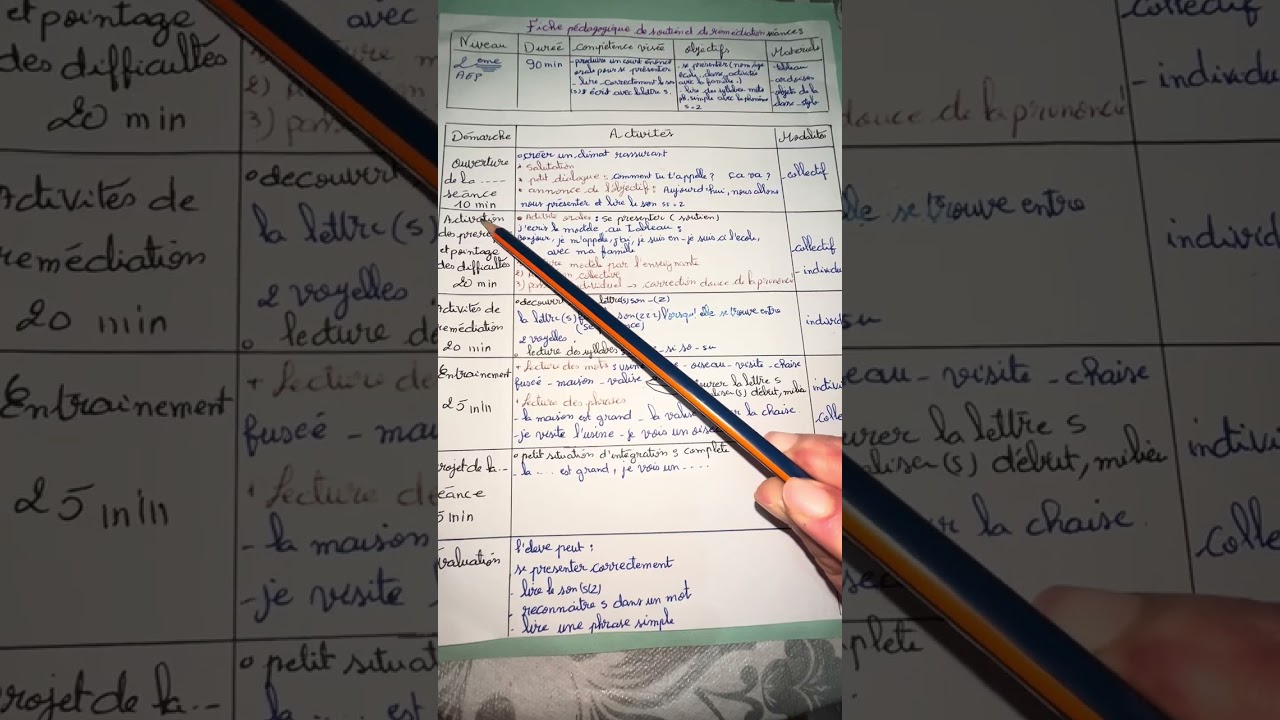 Fiche pédagogique de soutien et de remédiation séances
Niveau
2eme
AEP
Dureé
90 min
compétence visée
- produire un court énoncé
orale pour se présenter
- lire correctement le son
(s) écrit avec la lettre s.
objectifs
- se présenter (nom, age
école, classe, activités
avec la famille.)
- lire des syllabes, mots
ph. simple avec le phonème
s = z
Materiels
- tableau
- ardoises
- objets de la
classe - stylo
Démarche
Activités
Modalités
Ouverture
de la ----
séance
10 min
• créer un climat rassurant
• salutation
• petit dialogue : comment tu t'appelle ? ça va ?
• annonce de l'objectif : Aujourd'hui, nous allons
nous présenter et lire le son s = z
- collectif
Activation
des prereq
et pointage
des difficultés
20 min
• Activité orales : se presenter ( soutien)
j'ecris le modèle au tableau :
Bonjour, je m'appelle, j'ai, je suis en - je suis à l'ecole,
avec ma famille
modèle par l'enseignante
2) collective
3) individuel → correction douce de la prononci
collectif
- individu
Activités de
remédiation
20 min
• decouvert lettre(s) son - (z)
la lettre (s) son (zzz) lorsqu'elle se trouve entre
2 voyelles.
• lecture des syllabes - si so - su
individu
Entrainement
25 min
+ lecture des mots : usine - oiseau - visite - chaise
fuseé - maison - valise
urer la lettre s
aliser (s) début, milieu
+ lecture des phrases
- la maison est grand - la valise sur la chaise.
- je visite l'usine - je vois un oiseau
individu
- colle
projet de la --
séance
5 min
• petit situation d'intégration s complete
- la .... est grand, je vois un - . . .
évaluation
l'éleve peut :
se presenter correctement
- lire le son (s(z)
- reconnaitre s dans un mot
- lire une phrase simple